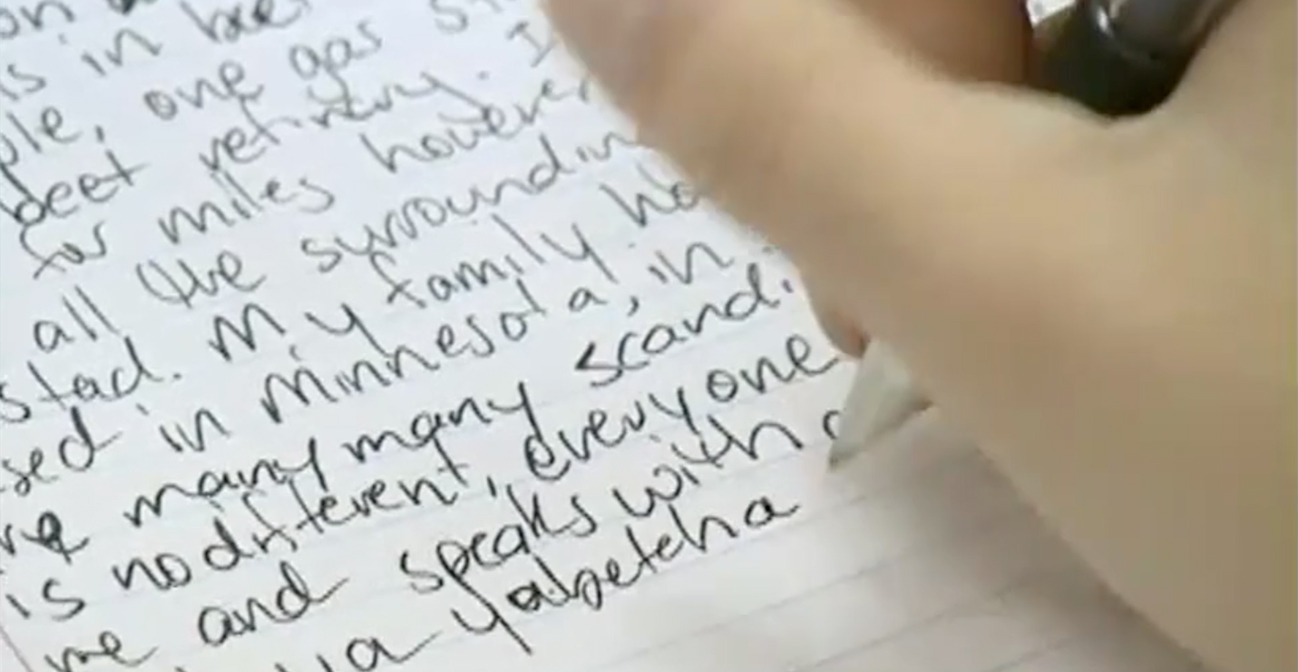 on
is in beet
ple, one gas
beet refinery. I
for miles hover
all the surroundin
stad. My family ha
sed in Minnesota, in
many many scandi
is no different, everyone
me and speaks with a
ya yabetcha